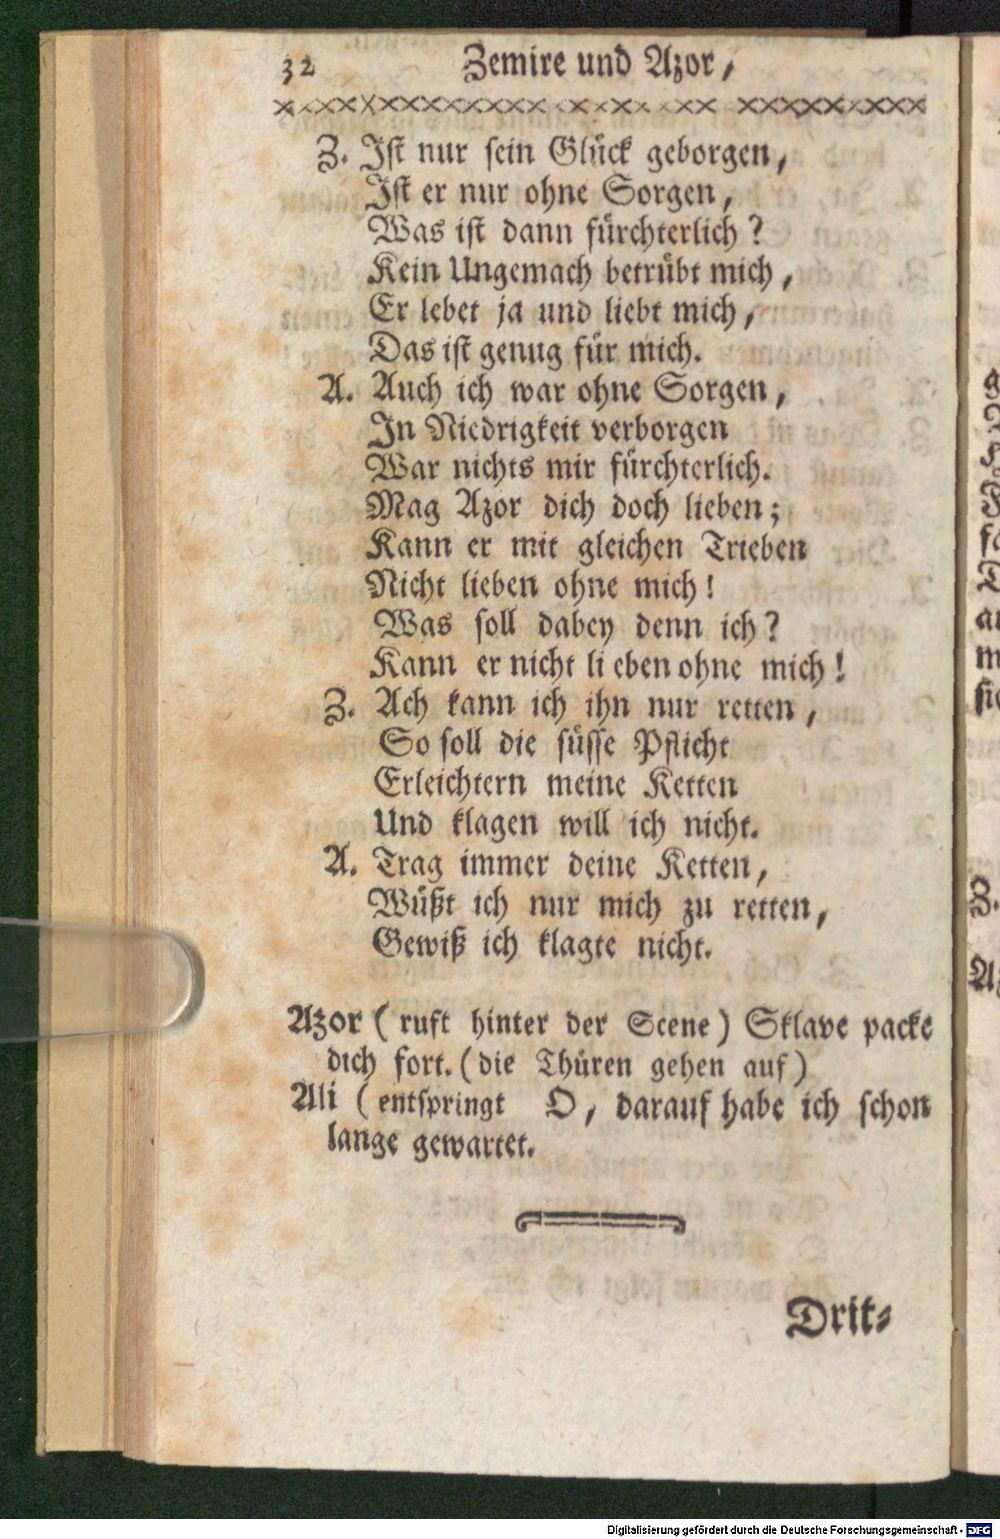 32 Zemire und Azor,
Z. Ist nur sein Glück geborgen,
Ist er nur ohne Sorgen,
Was ist dann fürchterlich?
Kein Ungemach betrübt mich,
Er lebet ja und liebt mich,
Das ist genug für mich.
A. Auch ich war ohne Sorgen,
In Niedrigkeit verborgen
War nichts mir fürchterlich.
Mag Azor dich doch lieben;
Kann er mit gleichen Trieben
Nicht lieben ohne mich!
Was soll dabey denn ich?
Kann er nicht li eben ohne mich!
Z. Ach kann ich ihn nur retten,
So soll die süsse Pflicht
Erleichtern meine Ketten
Und klagen will ich nicht.
A. Trag immer deine Ketten,
Wüßt ich nur mich zu retten,
Gewiß ich klagte nicht.
Azor (ruft hinter der Scene) Sklave packe
dich fort. (die Thüren gehen auf)
Ali (entspringt O, darauf habe ich schon
lange gewartet.
Drit-
Digitalisierung gefördert durch die Deutsche Forschungsgemeinschaft - DFG